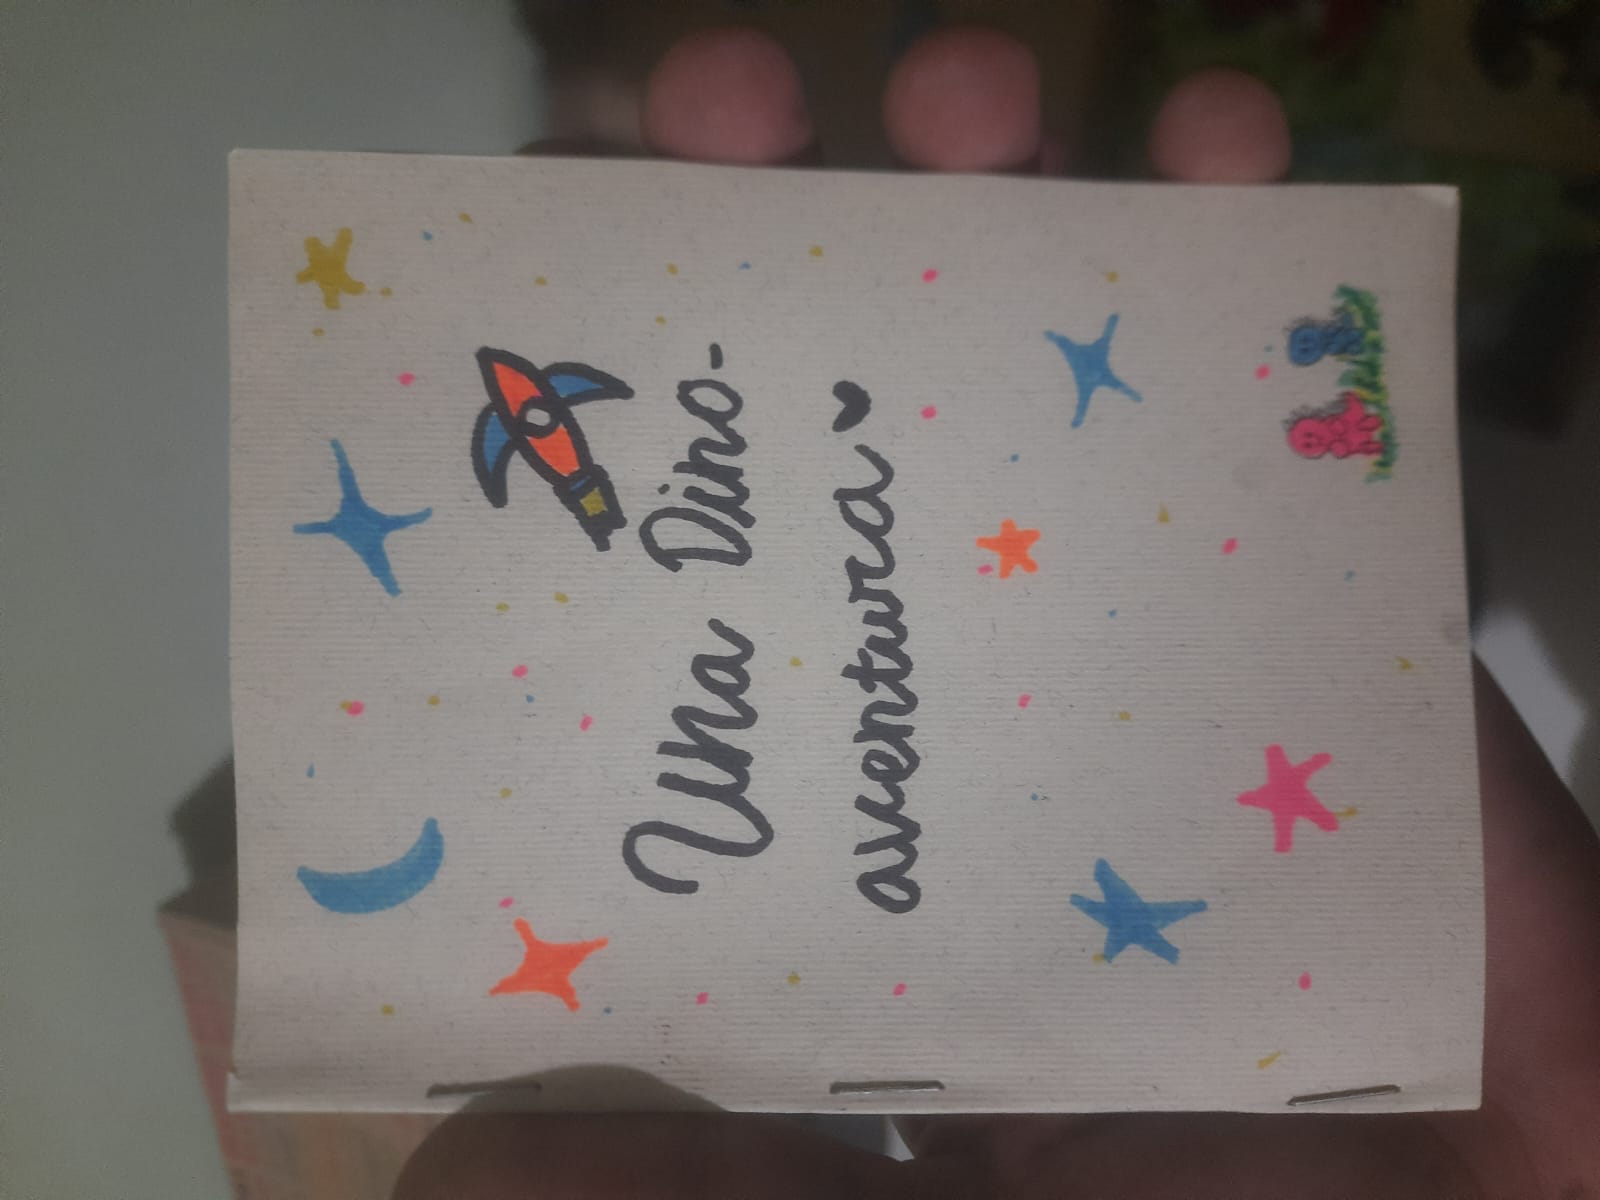 Una Dino-
aventura